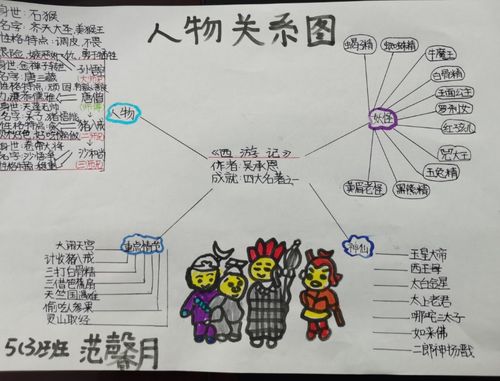 人物关系图
身世:石猴
名字:齐天大圣 美猴王
性格特点:调皮、不畏
孙悟空
(大师兄)
名字:唐三藏
唐僧
(师傅)
猪八戒
沙和尚
人物
《西游记》
作者:吴承恩
成就:四大名著之一
妖怪
蝎子精
蜘蛛精
牛魔王
白骨精
玉面公主
罗刹女
红孩儿
玉兔精
黑熊精
黄眉老怪
重点情节
大闹天宫
计收猪八戒
三打白骨精
三借芭蕉扇
天竺国遇难
偷吃人参果
灵山取经
神仙
玉皇大帝
西王母
太白金星
太上老君
哪吒三太子
如来佛
二郎神杨戬
5(3)班 范馨月